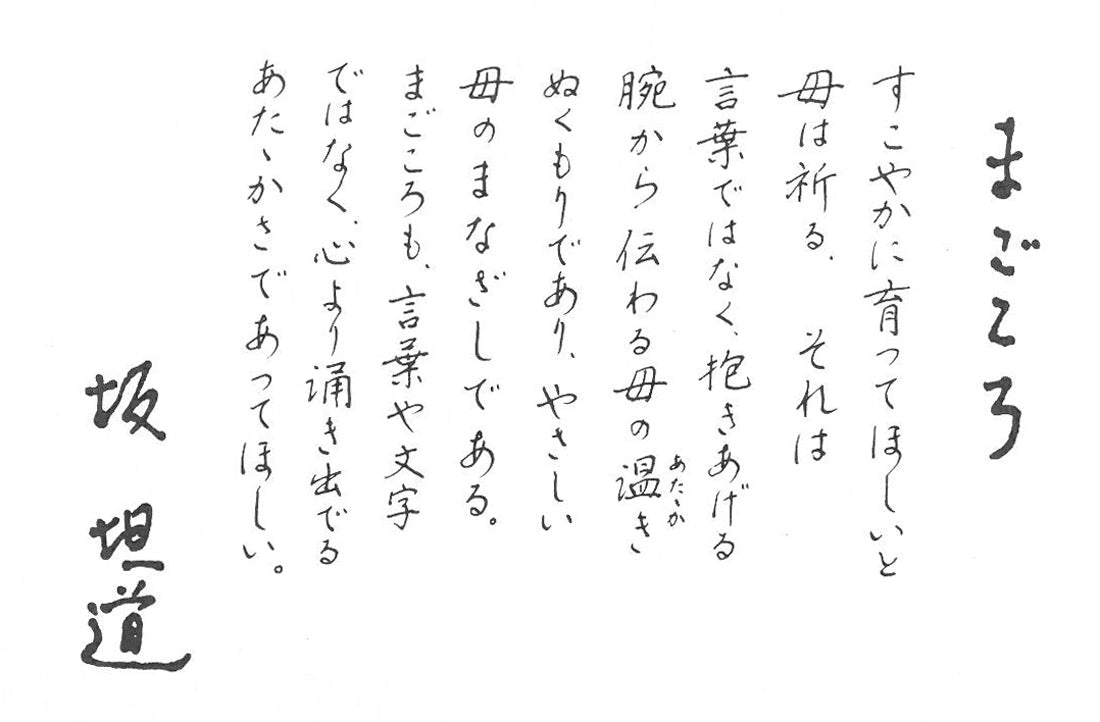 まごころ
すこやかに育ってほしいと
母は祈る、それは
言葉ではなく、抱きあげる
腕から伝わる母の温き
あたゝか
ぬくもりであり、やさしい
母のまなざしである。
まごころも、言葉や文字
ではなく、心より涌き出でる
あたゝかさであってほしい。
坂 坦道